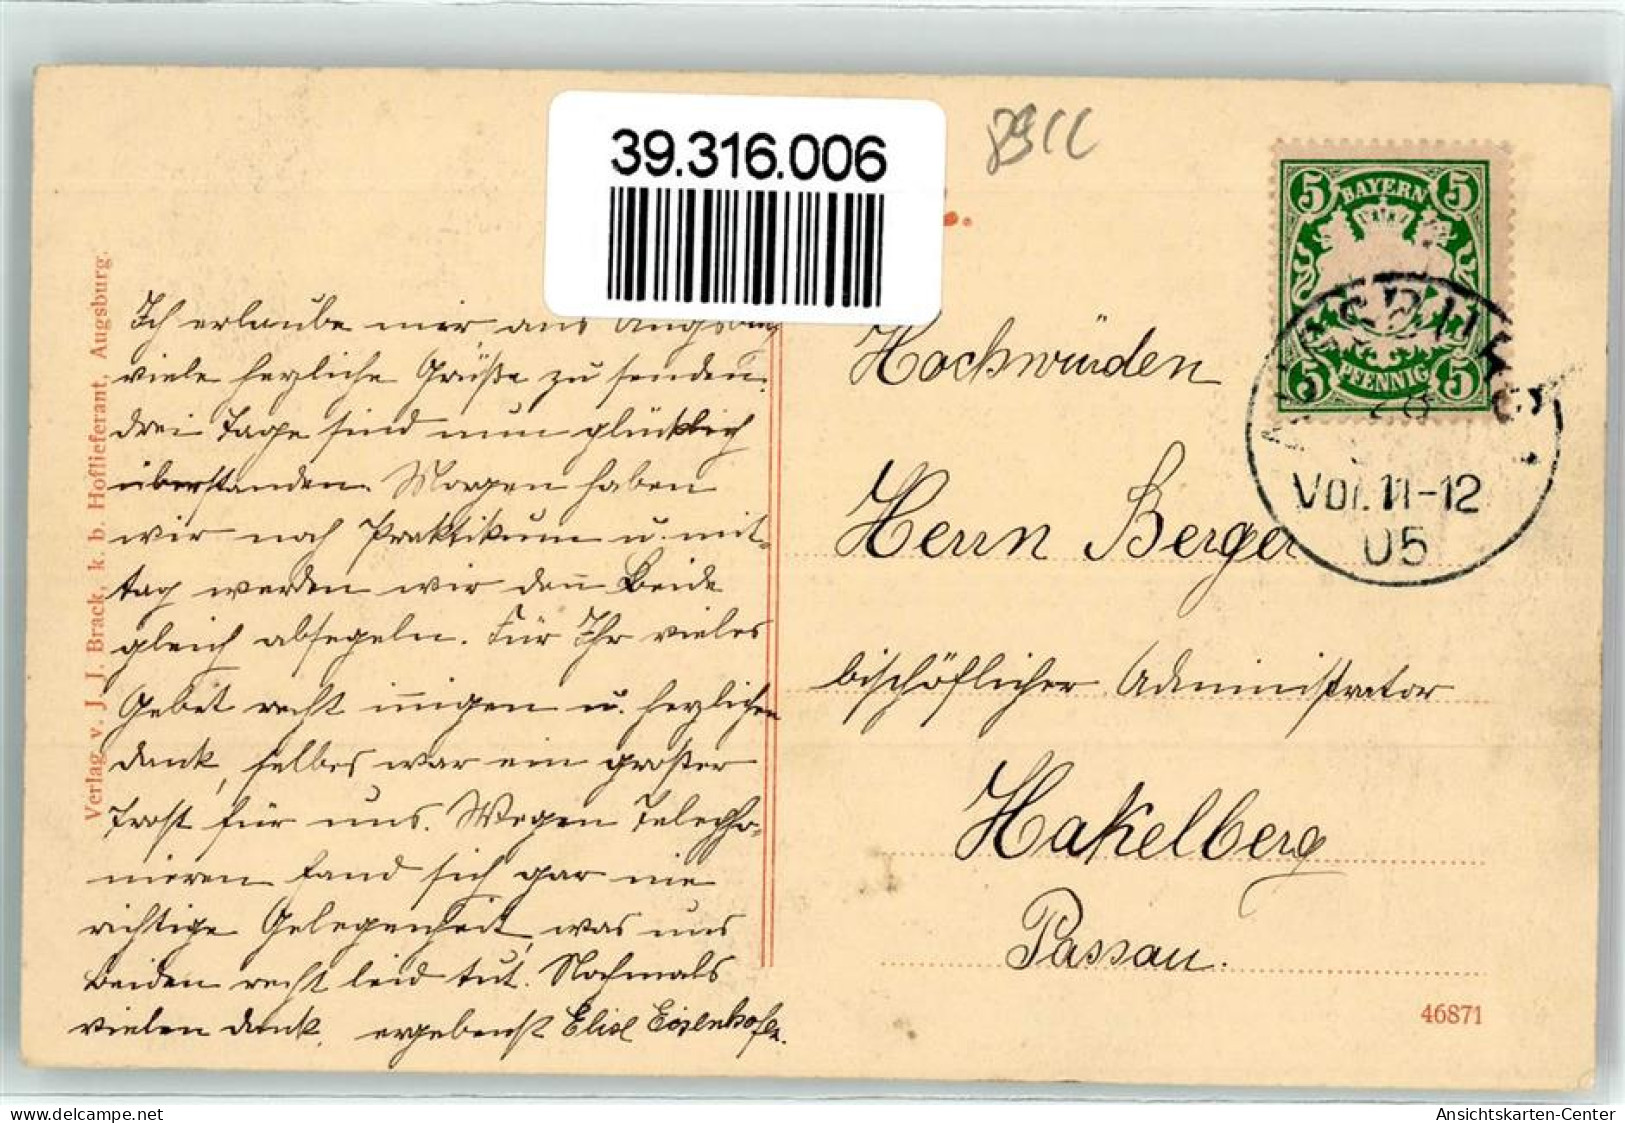 39.316.006
8911
BAYERN
5 5
5 PFENNIG 5
AUGSBURG
Vor. 11-12
05
Verlag v. J. J. Brack, k. b. Hoflieferant, Augsburg.
Ich erlaube mir aus Augsburg
viele herzliche Grüße zu senden.
drei Tage sind nun glücklich
überstanden. Morgen haben
wir noch Praktikum u. mit-
tag werden wir den Beide
gleich absegeln. Für Ihr vieles
Gebet recht innigen u. herzlichen
Dank, selbes war ein großer
Trost für uns. Wegen Telepho-
nieren fand sich gar nie
richtige Gelegenheit, was uns
beiden recht leid tut. Nochmals
vielen Dank. ergebenst Elise Eisenhofer.
Hochwürden
Herrn Berger
bischöflicher Administrator
Hakelberg
Passau.
46871
delcampe.net
Ansichtskarten-Center